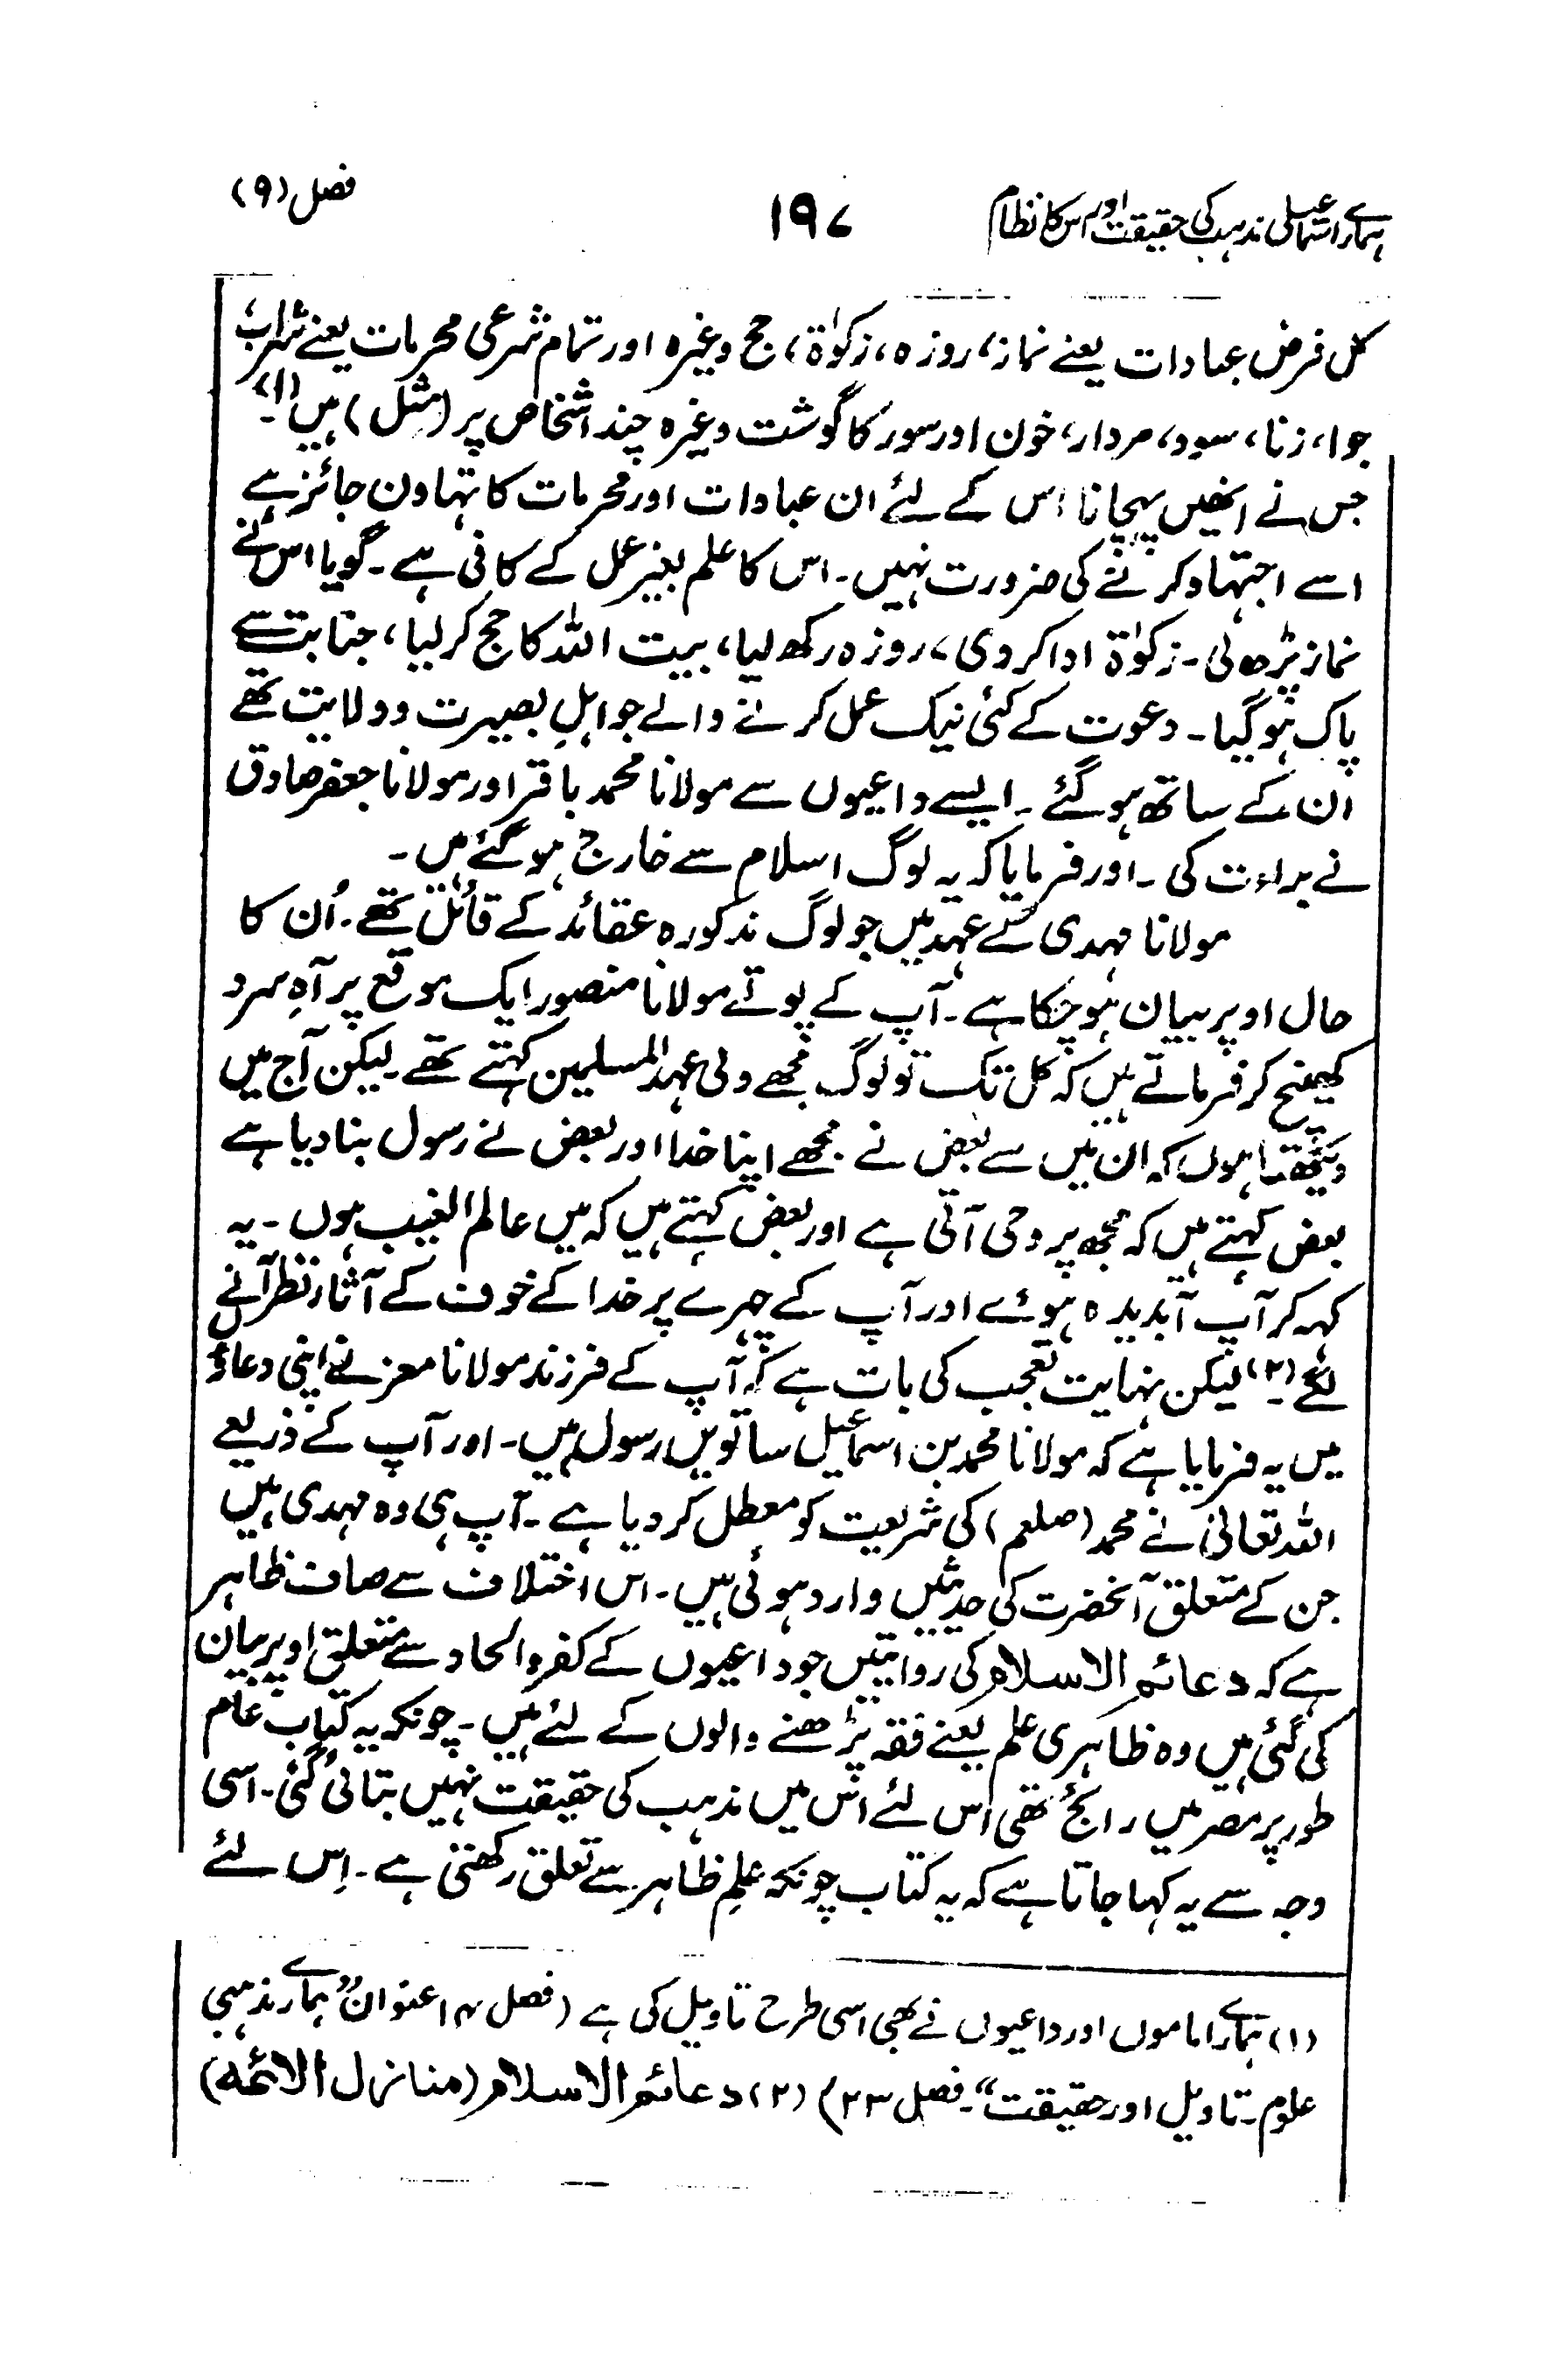 ہمارے اسماعیلی مذہب کی حقیقت اور اس کا نظام ۱۹۷ فصل (۹)
کل فرض عبادات یعنے نماز، روزہ، زکوٰۃ، حج وغیرہ اور تمام شرعی محرمات یعنے شراب،
جوا، زنا، سود، مردار، خون اور سور کا گوشت وغیرہ چند اشخاص پر (مثل) ہیں (۱)۔
جس نے انھیں پہچانا اس کے لئے ان عبادات اور محرمات کا تہاون جائز ہے
اسے اجتہاد کرنے کی ضرورت نہیں۔ اس کا علم بغیر عمل کے کافی ہے۔ گویا اس نے
نماز پڑھ لی۔ زکوٰۃ ادا کر دی، روزہ رکھ لیا، بیت اللہ کا حج کر لیا، جنابت سے
پاک ہو گیا۔ دعوت کے کئی نیک عمل کرنے والے جو اہلِ بصیرت و ولایت تھے
ان کے ساتھ ہو گئے۔ ایسے داعیوں سے مولانا محمد باقر اور مولانا جعفر صادق
نے براءت کی۔ اور فرمایا کہ یہ لوگ اسلام سے خارج ہو گئے ہیں۔
مولانا مہدی کے عہد میں جو لوگ مذکورہ عقائد کے قائل تھے۔ اُن کا
حال اوپر بیان ہو چکا ہے۔ آپ کے پوتے مولانا منصور ایک موقع پر آہِ سرد
کھینچ کر فرماتے ہیں کہ کل تک تو لوگ مجھے ولی عہد المسلمین کہتے تھے۔ لیکن آج میں
دیکھتا ہوں کہ ان میں سے بعض نے مجھے اپنا خدا اور بعض نے رسول بنا دیا ہے
بعض کہتے ہیں کہ مجھ پر وحی آتی ہے اور بعض کہتے ہیں کہ میں عالم الغیب ہوں۔ یہ
کہہ کر آپ آبدیدہ ہوئے اور آپ کے چہرے پر خدا کے خوف کے آثار نظر آنے
لگے۔(۲) لیکن نہایت تعجب کی بات ہے کہ آپ کے فرزند مولانا معز نے اپنی دعاؤں
میں یہ فرمایا ہے کہ مولانا محمد بن اسماعیل ساتویں رسول ہیں۔ اور آپ کے ذریعے
اللہ تعالیٰ نے محمد (صلعم) کی شریعت کو معطل کر دیا ہے۔ آپ ہی وہ مہدی ہیں
جن کے متعلق آنحضرت کی حدیثیں وارد ہوئی ہیں۔ اس اختلاف سے صاف ظاہر
ہے کہ دعائم الاسلام کی روایتیں جو داعیوں کے کفر و الحاد سے متعلق اوپر بیان
کی گئی ہیں وہ ظاہری علم یعنے فقہ پڑھنے والوں کے لئے ہیں۔ چونکہ یہ کتاب عام
طور پر مصر میں رائج تھی اس لئے اس میں مذہب کی حقیقت نہیں بتائی گئی۔ اسی
وجہ سے یہ کہا جاتا ہے کہ یہ کتاب چونکہ علمِ ظاہر سے تعلق رکھتی ہے۔ اِس لئے
(۱) ہمارے اماموں اور داعیوں نے بھی اسی طرح تاویل کی ہے (فصل ۱۴ عنوان "ہمارے مذہبی
علوم۔ تاویل اور حقیقت"۔ فصل ۲۳) (۲) دعائم الاسلام (منازل الائمہ)